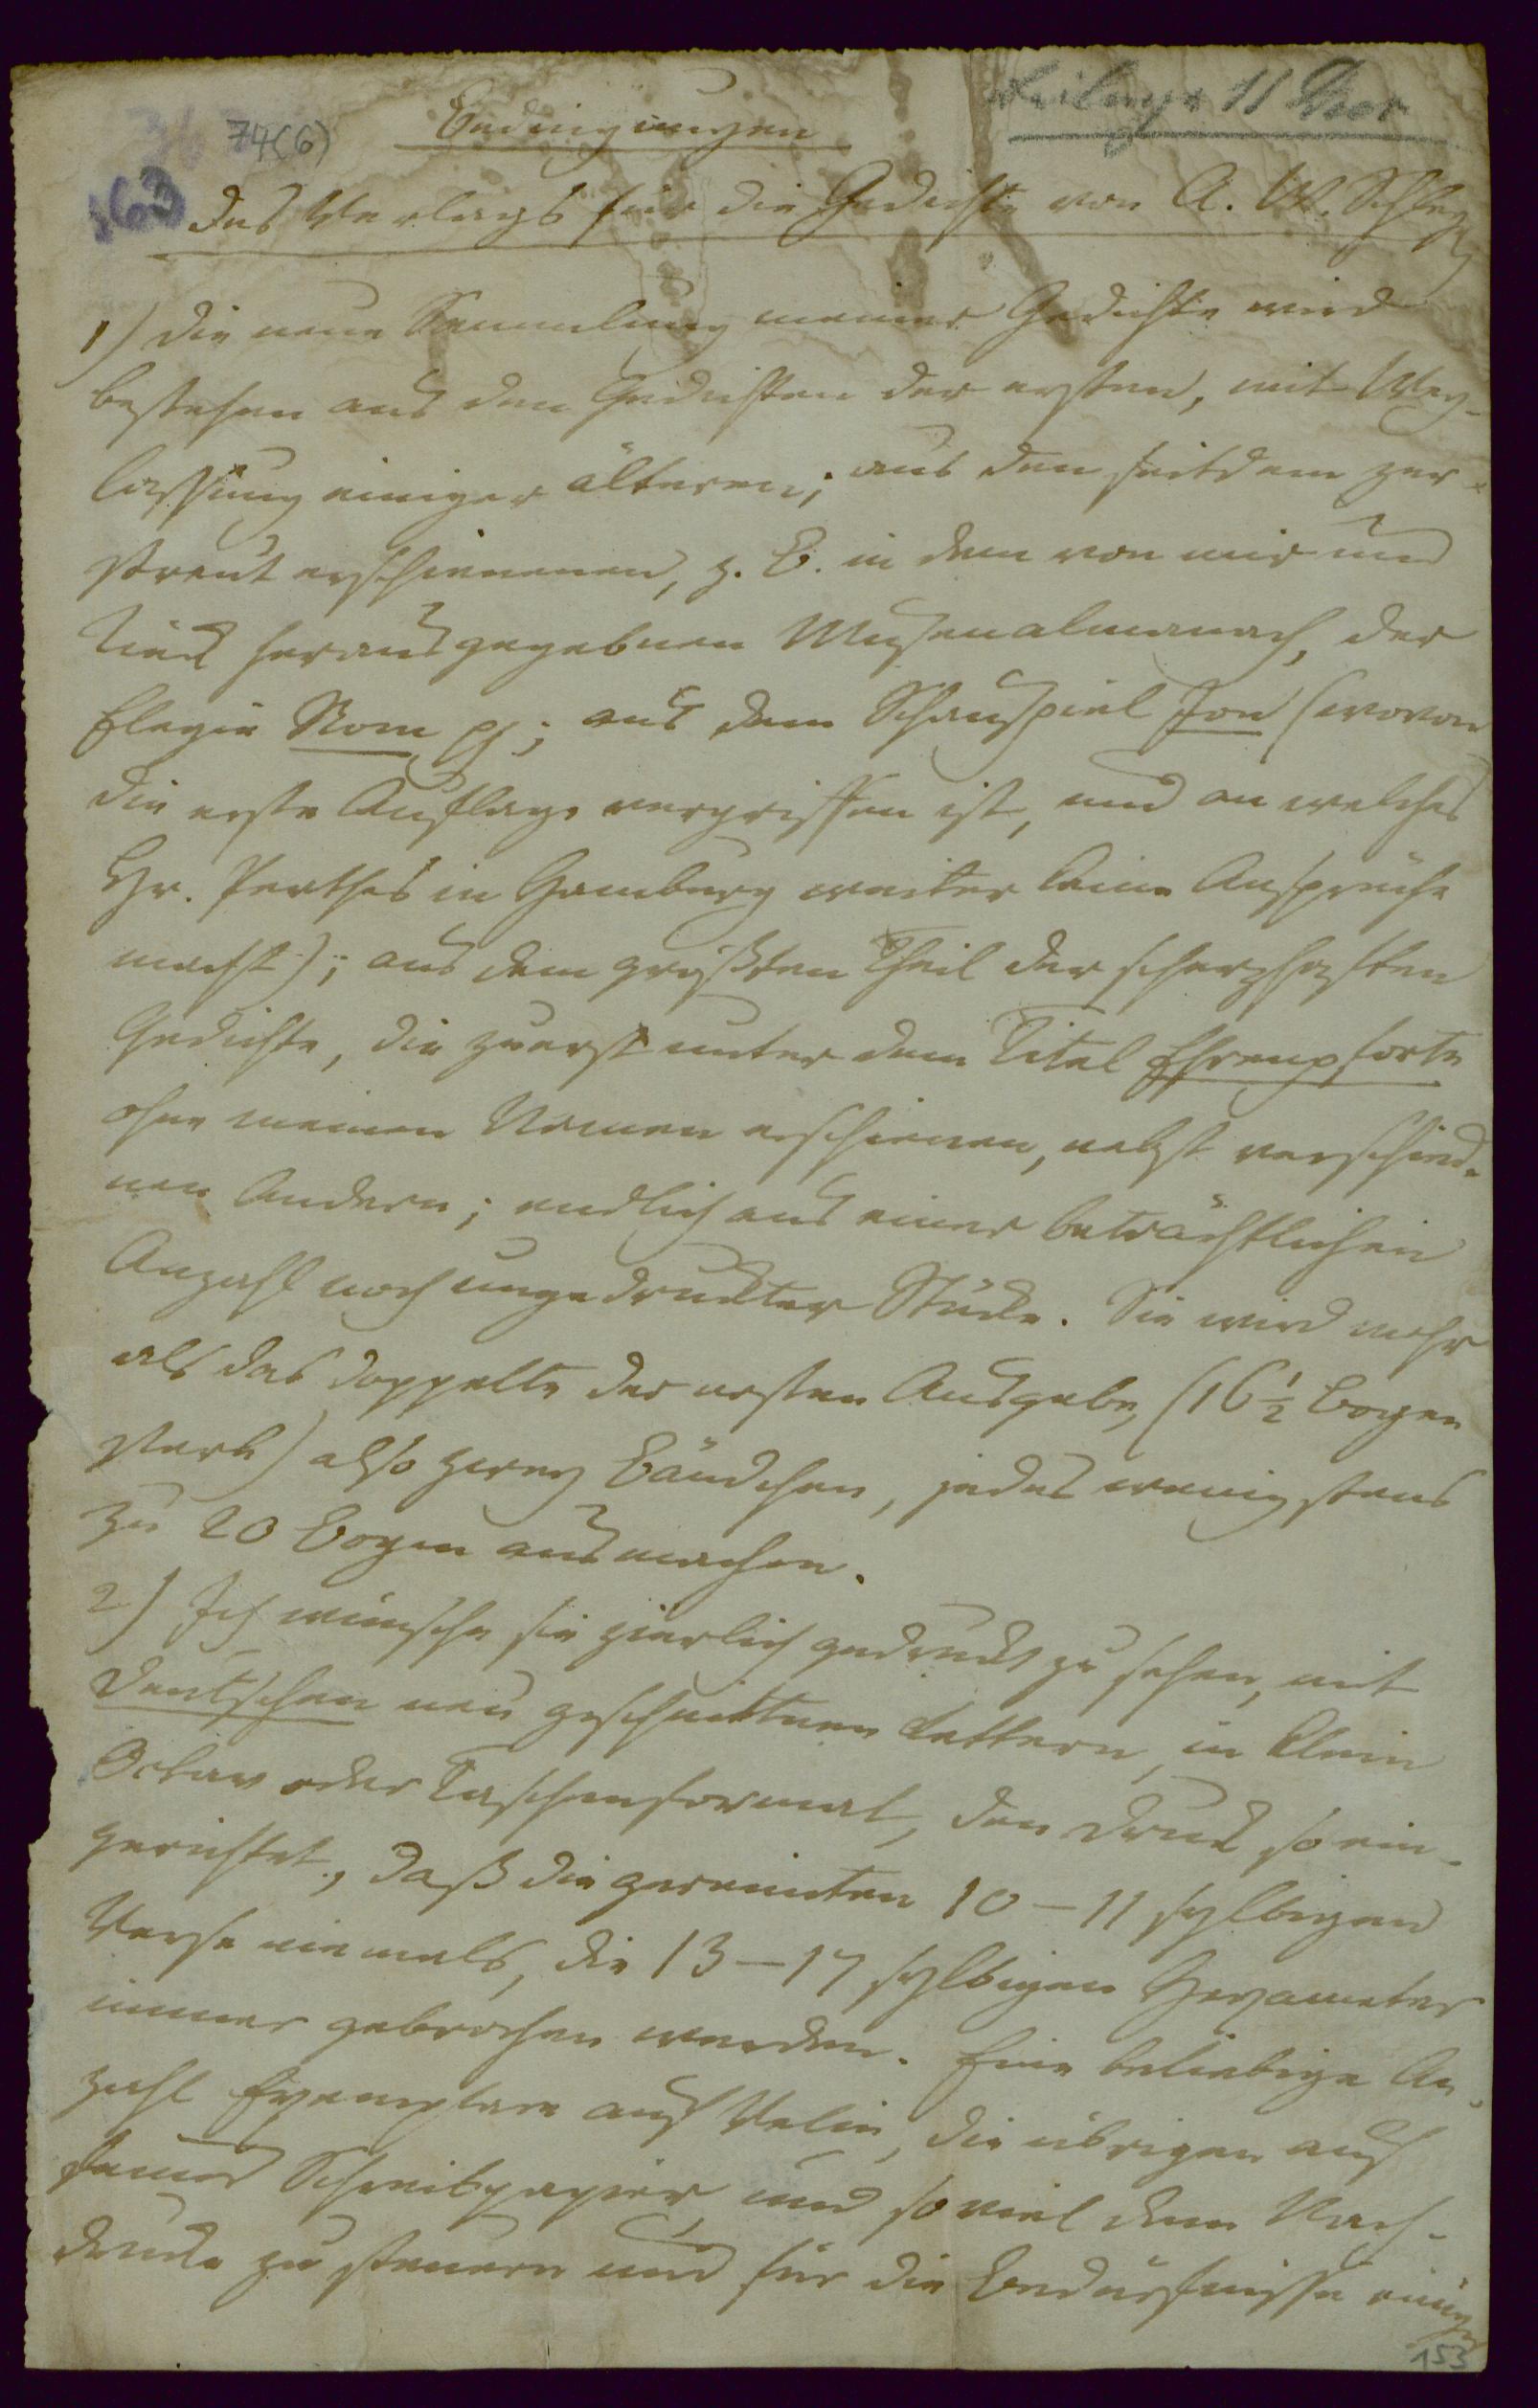 74(6)
163
Beilage 11
Bedingungen
des Verlags für die Gedichte von A. W. Schlegel
1) Die neue Sammlung meiner Gedichte wird
bestehen aus den Gedichten der ersten, mit Weg-
lassung einiger älteren; aus den seitdem zer-
streut erschienenen, z. B. in dem von mir und
Tieck herausgegebnen Musenalmanach, der
Elegie Rom pp; aus dem Schauspiel Jon (wovon
die erste Auflage vergriffen ist, und an welches
Hr. Perthes in Hamburg weiter keine Ansprüche
macht); aus dem größten Theil der scherzhaften
Gedichte, die zuerst unter dem Titel Ehrenpforte
ohne meinen Namen erschienen, nebst verschied-
nen Andern; endlich aus einer beträchtlichen
Anzahl noch ungedruckter Stücke. Sie wird mehr
als das doppelte der ersten Ausgabe, (16 1/2 Bogen
stark) also zwey Bändchen, jedes wenigstens
zu 20 Bogen ausmachen.
2) Ich wünsche sie zierlich gedruckt zu sehen, mit
deutschen neu geschnittnen Lettern, in klein
Octav oder Taschenformat, den Druck so ein-
gerichtet, daß die gereimten 10–11 sylbigen
Verse niemals, die 13–17 sylbigen Hexameter
immer gebrochen werden. Eine beliebige An-
zahl Exemplare auf Velin, die übrigen auf
Schreibpapier, und soviel dem Nach-
drucke zu steuern und für die Bedürfnisse einiger
153